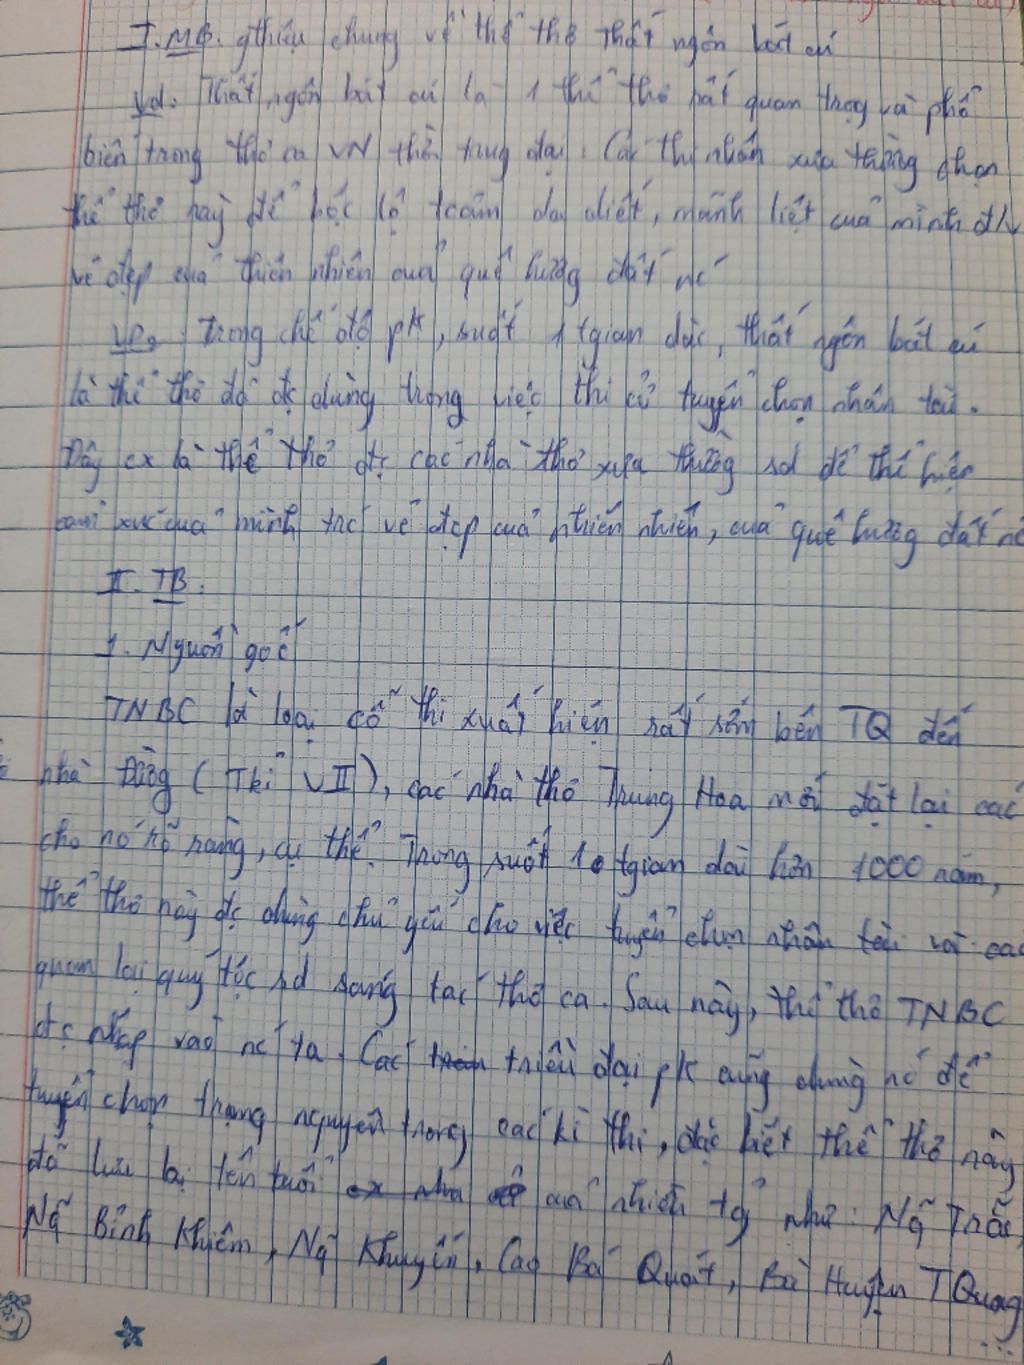 I. MB. gthiệu chung về thể thơ thất ngôn bát cú
Vd. Thất ngôn bát cú là 1 thể thơ rất quan trọg và phổ
biến trong thơ ca VN thời trug đại. Các thi nhân xưa thường chọn
thể thơ này để bộc lộ tcảm da diết, mãnh liệt của mình đ/v
vẻ đẹp của thiên nhiên của quê hương đất nc
VD2 Trong chế độ pk, suốt 1 tgian dài, thất ngôn bát cú
là thể thơ đã đc dùng trong việc thi cử tuyển chọn nhân tài.
Đây cx là thể thơ đc các nhà thơ xưa thường sd để thể hiện
cảm xúc của mình trc vẻ đẹp của thiên nhiên, của quê hương đất nc
II. TB.
1. Nguồn gốc
TNBC là loại cổ thi xuất hiện rất sớm bên TQ đến
nhà Đường (Tkỉ VII), các nhà thơ Trung Hoa mới đặt lại các
cho nó rõ ràng, cụ thể. Trong suốt 1 tgian dài hơn 1000 năm,
thể thơ này đc dùng chủ yếu cho việc tuyển chọn nhân tài và các
quan lại quý tộc sd sáng tác thơ ca. Sau này, thể thơ TNBC
đc nhập vào nc ta. Các triều đại pk cũng dùng nó để
tuyển chọn trạng nguyên trong các kì thi, đặc biệt thể thơ này
đã lưu lại tên tuổi của nhiều tg như: Ng~ Trãi,
Ng~ Bỉnh Khiêm, Ng~ Khuyến, Cao Bá Quát, Bà Huyện TQuag
...